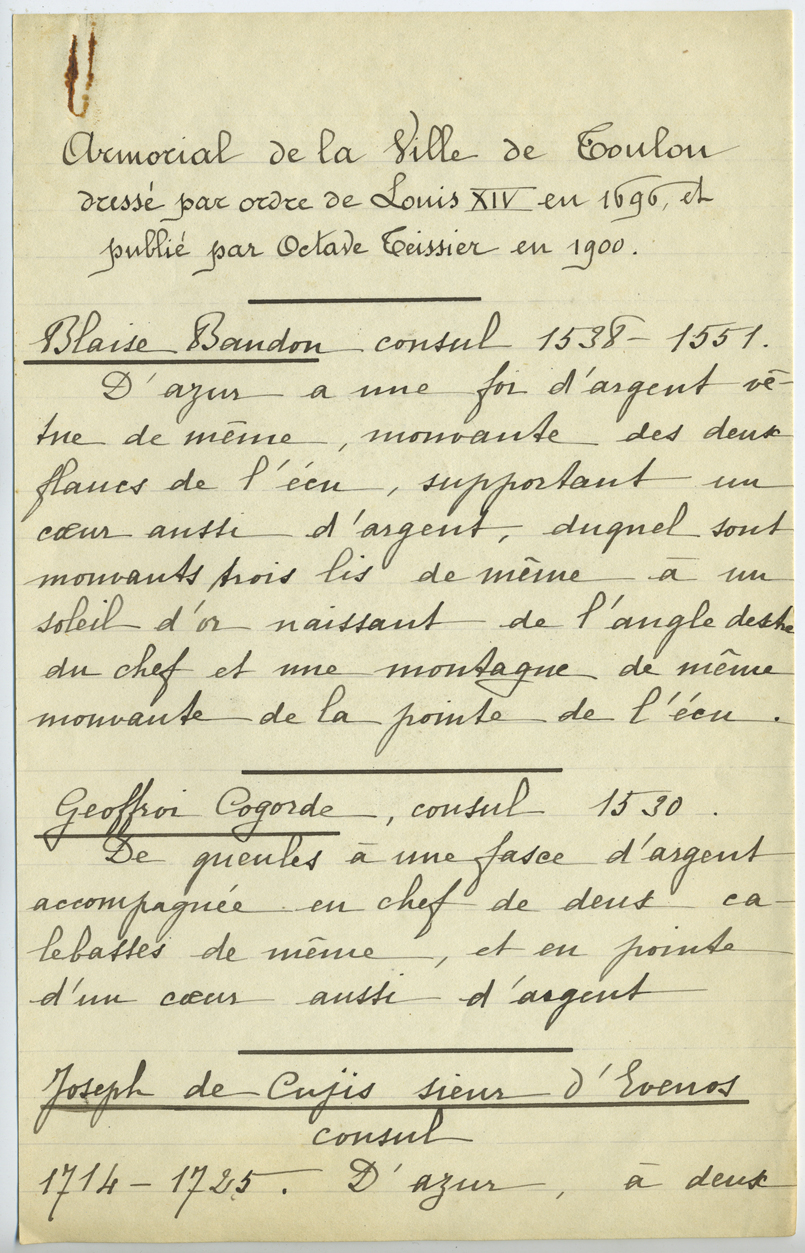 Armorial de la Ville de Toulon
dressé par ordre de Louis XIV en 1696, et
publié par Octave Teissier en 1900.
Blaise Baudon consul 1538 - 1551.
D'azur a une foi d'argent vê-
tue de même, mouvante des deux
flancs de l'écu, supportant un
cœur aussi d'argent, duquel sont
mouvants trois lis de même à un
soleil d'or naissant de l'angle dextre
du chef et une montagne de même
mouvante de la pointe de l'écu.
Geoffroi Cogorde, consul 1530.
De gueules à une fasce d'argent
accompagnée en chef de deux ca-
lebasses de même, et en pointe
d'un cœur aussi d'argent
Joseph de Cujis sieur d'Evenos
consul
1714 - 1725. D'azur, à deux